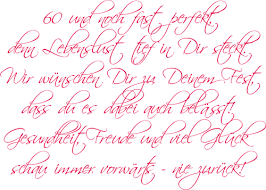 60 und noch fast perfekt,
denn Lebenslust tief in Dir steckt.
Wir wünschen Dir zu Deinem Fest,
dass du es dabei auch belässt!
Gesundheit, Freude und viel Glück
schau immer vorwärts - nie zurück!